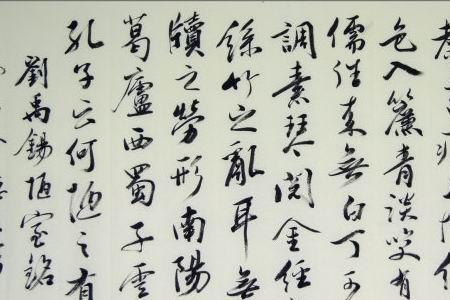 色入簾青談笑有
儒往來無白丁可
調素琴閱金經
絲竹之亂耳無
牘之勞形南陽
葛廬西蜀子雲
孔子云何陋之有
劉禹錫陋室銘